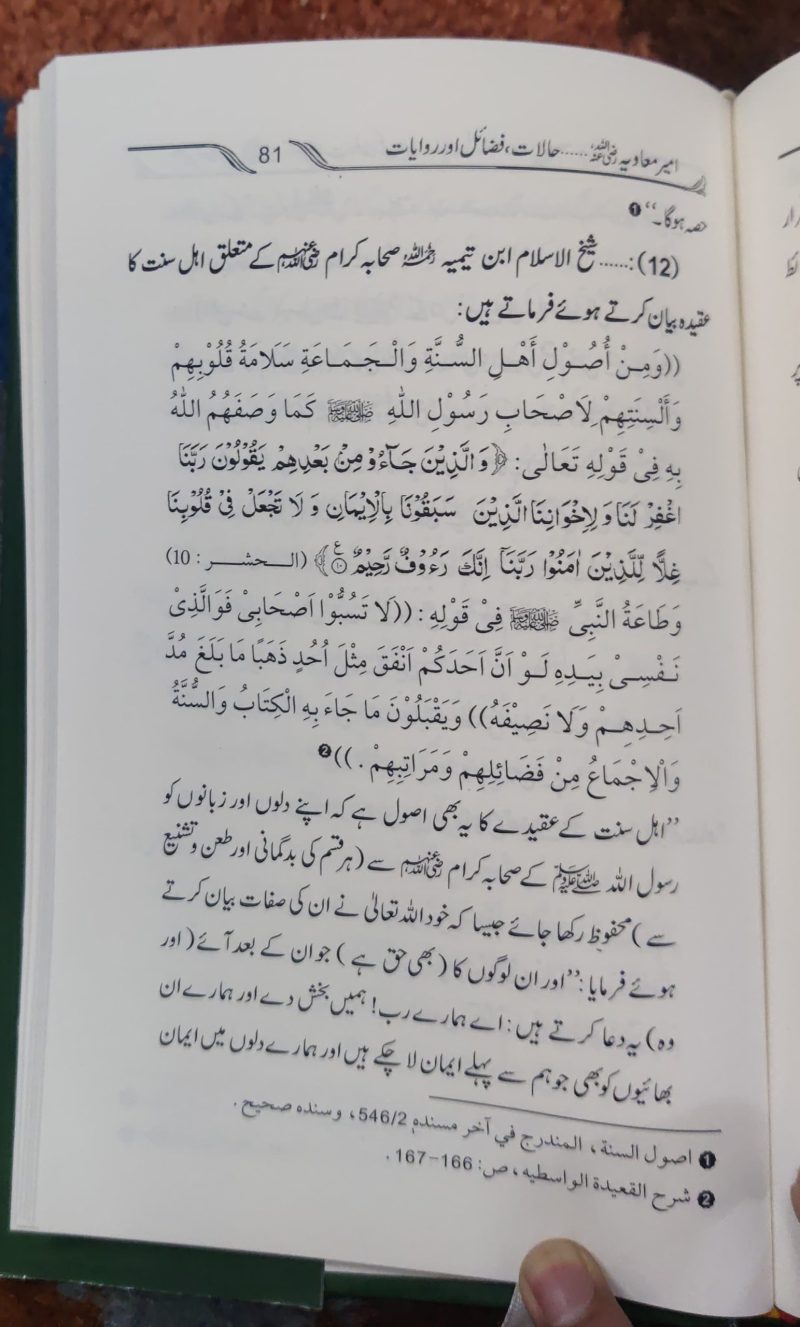 امیر معاویہ رضی اللہ عنہ...... حالات، فضائل اور روایات 81
حصہ ہوگا۔“ ❶
(12):...... شیخ الاسلام ابن تیمیہ رحمہ اللہ صحابہ کرام رضی اللہ عنہم کے متعلق اہل سنت کا
عقیدہ بیان کرتے ہوئے فرماتے ہیں:
((وَمِنْ أُصُوْلِ أَهْلِ السُّنَّةِ وَالْجَمَاعَةِ سَلَامَةُ قُلُوْبِهِمْ
وَأَلْسِنَتِهِمْ لِاَصْحَابِ رَسُوْلِ اللهِ ﷺ كَمَا وَصَفَهُمُ اللهُ
بِهِ فِيْ قَوْلِهِ تَعَالٰى: ﴿وَالَّذِيْنَ جَآءُوْ مِنْۢ بَعْدِهِمْ يَقُوْلُوْنَ رَبَّنَا
اغْفِرْ لَنَا وَلِاِخْوَانِنَا الَّذِيْنَ سَبَقُوْنَا بِالْاِيْمَانِ وَ لَا تَجْعَلْ فِيْ قُلُوْبِنَا
غِلًّا لِّلَّذِيْنَ اٰمَنُوْا رَبَّنَآ اِنَّكَ رَءُوْفٌ رَّحِيْمٌ ۝۱۰ ع﴾ (الحشر : 10)
وَطَاعَةُ النَّبِيِّ ﷺ فِيْ قَوْلِهِ : ((لَا تَسُبُّوْا اَصْحَابِيْ فَوَالَّذِيْ
نَفْسِيْ بِيَدِهِ لَوْ اَنَّ اَحَدَكُمْ اَنْفَقَ مِثْلَ اُحُدٍ ذَهَبًا مَا بَلَغَ مُدَّ
اَحِدِهِمْ وَلَا نَصِيْفَهُ)) وَيَقْبَلُوْنَ مَا جَاءَ بِهِ الْكِتَابُ وَالسُّنَّةُ
وَالْاِجْمَاعُ مِنْ فَضَائِلِهِمْ وَمَرَاتِبِهِمْ . )) ❷
”اہل سنت کے عقیدے کا یہ بھی اصول ہے کہ اپنے دلوں اور زبانوں کو
رسول اللہ ﷺ کے صحابہ کرام رضی اللہ عنہم سے (ہر قسم کی بدگمانی اور طعن و تشنیع
سے) محفوظ رکھا جائے جیسا کہ خود اللہ تعالیٰ نے ان کی صفات بیان کرتے
ہوئے فرمایا: ”اور ان لوگوں کا (بھی حق ہے) جو ان کے بعد آئے (اور
وہ) یہ دعا کرتے ہیں: اے ہمارے رب! ہمیں بخش دے اور ہمارے ان
بھائیوں کو بھی جو ہم سے پہلے ایمان لا چکے ہیں اور ہمارے دلوں میں ایمان
❶ اصول السنة، المندرج في آخر مسنده 546/2، وسنده صحيح .
❷ شرح القعيدة الواسطيه، ص: 166-167 .